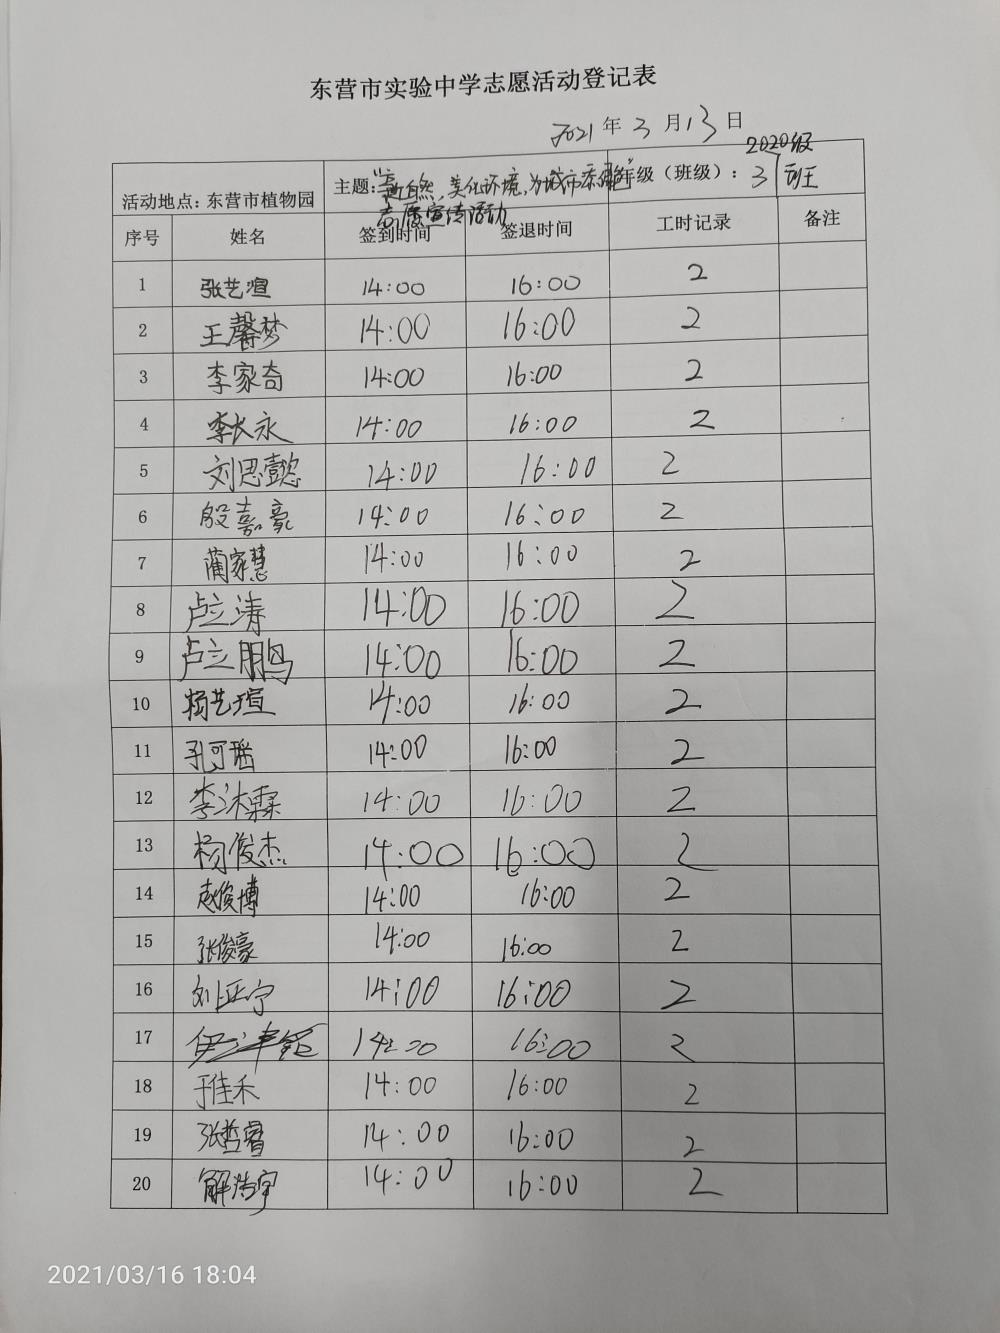 东营市实验中学志愿活动登记表
2021年3月13日
2020级
活动地点:东营市植物园 主题:"亲近自然,美化环境,为城市添绿" 年级(班级):3
志愿宣传活动
序号 姓名 签到时间 签退时间 工时记录 备注
1 张艺渲 14:00 16:00 2
2 王馨梦 14:00 16:00 2
3 李家奇 14:00 16:00 2
4 李长永 14:00 16:00 2
5 刘思懿 14:00 16:00 2
6 殷嘉豪 14:00 16:00 2
7 蔺家慧 14:00 16:00 2
8 卢立涛 14:00 16:00 2
9 卢立鹏 14:00 16:00 2
10 杨艺瑄 14:00 16:00 2
11 孔可瑶 14:00 16:00 2
12 李沐霖 14:00 16:00 2
13 杨俊杰 14:00 16:00 2
14 赵俊博 14:00 16:00 2
15 张俊豪 14:00 16:00 2
16 刘正宁 14:00 16:00 2
17 14:00 16:00 2
18 于佳禾 14:00 16:00 2
19 张哲睿 14:00 16:00 2
20 解浩宇 14:00 16:00 2
2021/03/16 18:04